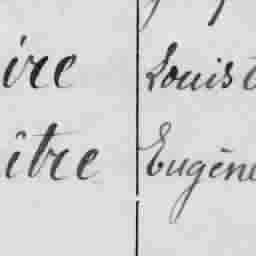 ire Louis
itre Eugène